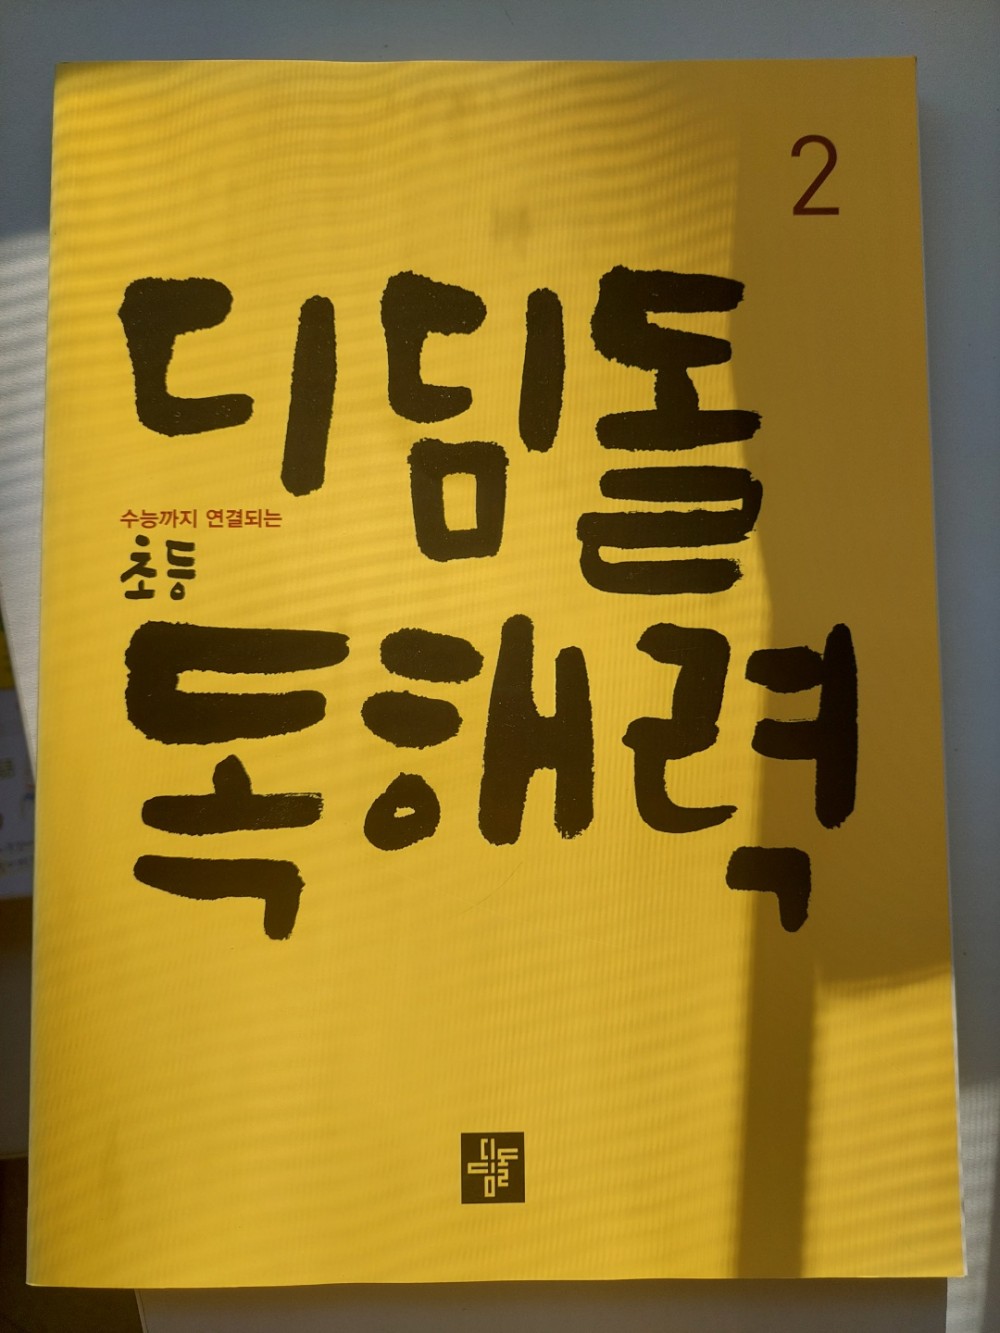 2
디딤돌
수능까지 연결되는
초등
독해력
디딤돌